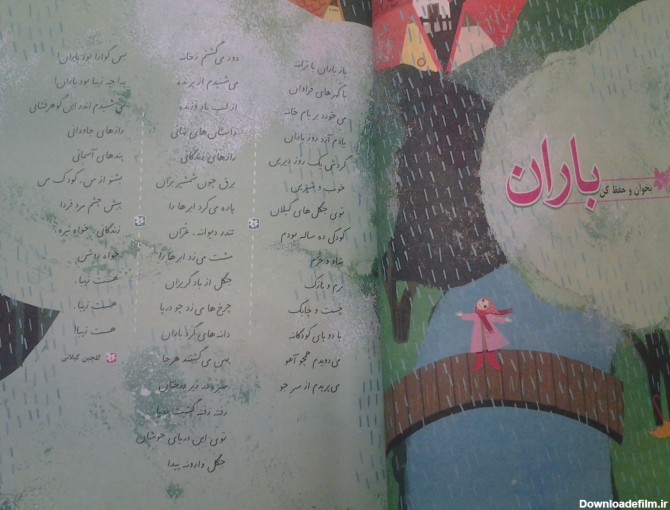 بخوان و حفظ کن
باران
باز باران با ترانه
با گهرهای فراوان
می خورد بر بام خانه
یادم آرد روز باران
گردش یک روز دیرین
خوب و شیرین
توی جنگل های گیلان
کودکی ده ساله بودم
شاد و خرم
نرم و نازک
چست و چابک
با دو پای کودکانه
می دویدم همچو آهو
می پریدم از سر جو
دور می گشتم ز خانه
می شنیدم از پرنده
از لب باد وزنده
داستان های نهانی
رازهای زندگانی
برق چون شمشیر بران
پاره می کرد ابرها را
تندر دیوانه، غران
مشت می زد ابرها را
جنگل از باد گریزان
چرخ ها می زد چو دریا
دانه های گرد باران
پهن می گشتند هر جا
سبزه در زیر درختان
رفته رفته گشت دریا
توی این دریای جوشان
جنگل وارونه پیدا
بس گوارا بود باران!
به! چه زیبا بود باران!
می شنیدم اندر این گوهرفشانی
رازهای جاودانی
پندهای آسمانی
بشنو از من، کودک من
پیش چشم مرد فردا
زندگانی خواه تیره
خواه روشن
هست زیبا،
هست زیبا،
هست زیبا!
گلچین گیلانی
Downloadefilm.ir